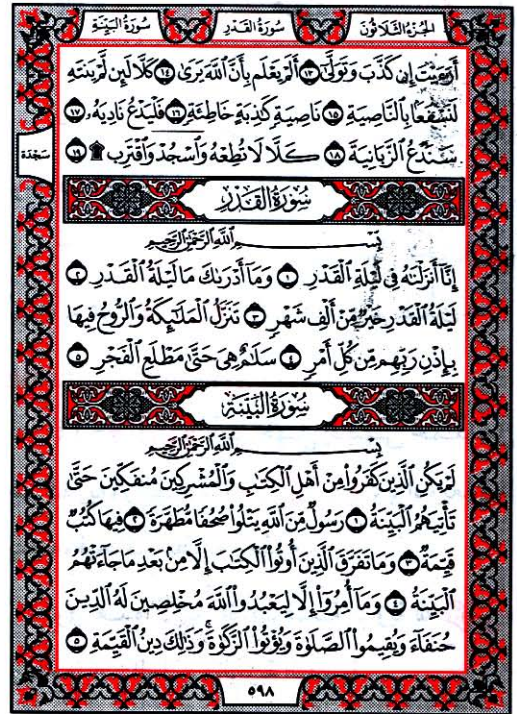 سُورَةُ البَيِّنَةِ سُورَةُ القَدْرِ الجُزْءُ الثَّلَاثُونَ
أَرَءَيْتَ إِن كَذَّبَ وَتَوَلَّىٰٓ ١٣ أَلَمْ يَعْلَم بِأَنَّ ٱللَّهَ يَرَىٰ ١٤ كَلَّا لَئِن لَّمْ يَنتَهِ
لَنَسْفَعًۢا بِٱلنَّاصِيَةِ ١٥ نَاصِيَةٍ كَٰذِبَةٍ خَاطِئَةٍ ١٦ فَلْيَدْعُ نَادِيَهُۥ ١٧
سَنَدْعُ ٱلزَّبَانِيَةَ ١٨ كَلَّا لَا تُطِعْهُ وَٱسْجُدْ وَٱقْتَرِب ۩ ١٩
سَجْدَة
سُورَةُ القَدْرِ
بِسْمِ ٱللَّهِ ٱلرَّحْمَٰنِ ٱلرَّحِيمِ
إِنَّآ أَنزَلْنَٰهُ فِى لَيْلَةِ ٱلْقَدْرِ ١ وَمَآ أَدْرَىٰكَ مَا لَيْلَةُ ٱلْقَدْرِ ٢
لَيْلَةُ ٱلْقَدْرِ خَيْرٌ مِّنْ أَلْفِ شَهْرٍ ٣ تَنَزَّلُ ٱلْمَلَٰٓئِكَةُ وَٱلرُّوحُ فِيهَا
بِإِذْنِ رَبِّهِم مِّن كُلِّ أَمْرٍ ٤ سَلَٰمٌ هِىَ حَتَّىٰ مَطْلَعِ ٱلْفَجْرِ ٥
سُورَةُ البَيِّنَةِ
بِسْمِ ٱللَّهِ ٱلرَّحْمَٰنِ ٱلرَّحِيمِ
لَمْ يَكُنِ ٱلَّذِينَ كَفَرُوا۟ مِنْ أَهْلِ ٱلْكِتَٰبِ وَٱلْمُشْرِكِينَ مُنفَكِّينَ حَتَّىٰ
تَأْتِيَهُمُ ٱلْبَيِّنَةُ ١ رَسُولٌ مِّنَ ٱللَّهِ يَتْلُوا۟ صُحُفًا مُّطَهَّرَةً ٢ فِيهَا كُتُبٌ
قَيِّمَةٌ ٣ وَمَا تَفَرَّقَ ٱلَّذِينَ أُوتُوا۟ ٱلْكِتَٰبَ إِلَّا مِنۢ بَعْدِ مَا جَآءَتْهُمُ
ٱلْبَيِّنَةُ ٤ وَمَآ أُمِرُوٓا۟ إِلَّا لِيَعْبُدُوا۟ ٱللَّهَ مُخْلِصِينَ لَهُ ٱلدِّينَ
حُنَفَآءَ وَيُقِيمُوا۟ ٱلصَّلَوٰةَ وَيُؤْتُوا۟ ٱلزَّكَوٰةَ ۚ وَذَٰلِكَ دِينُ ٱلْقَيِّمَةِ ٥
٥٩٨